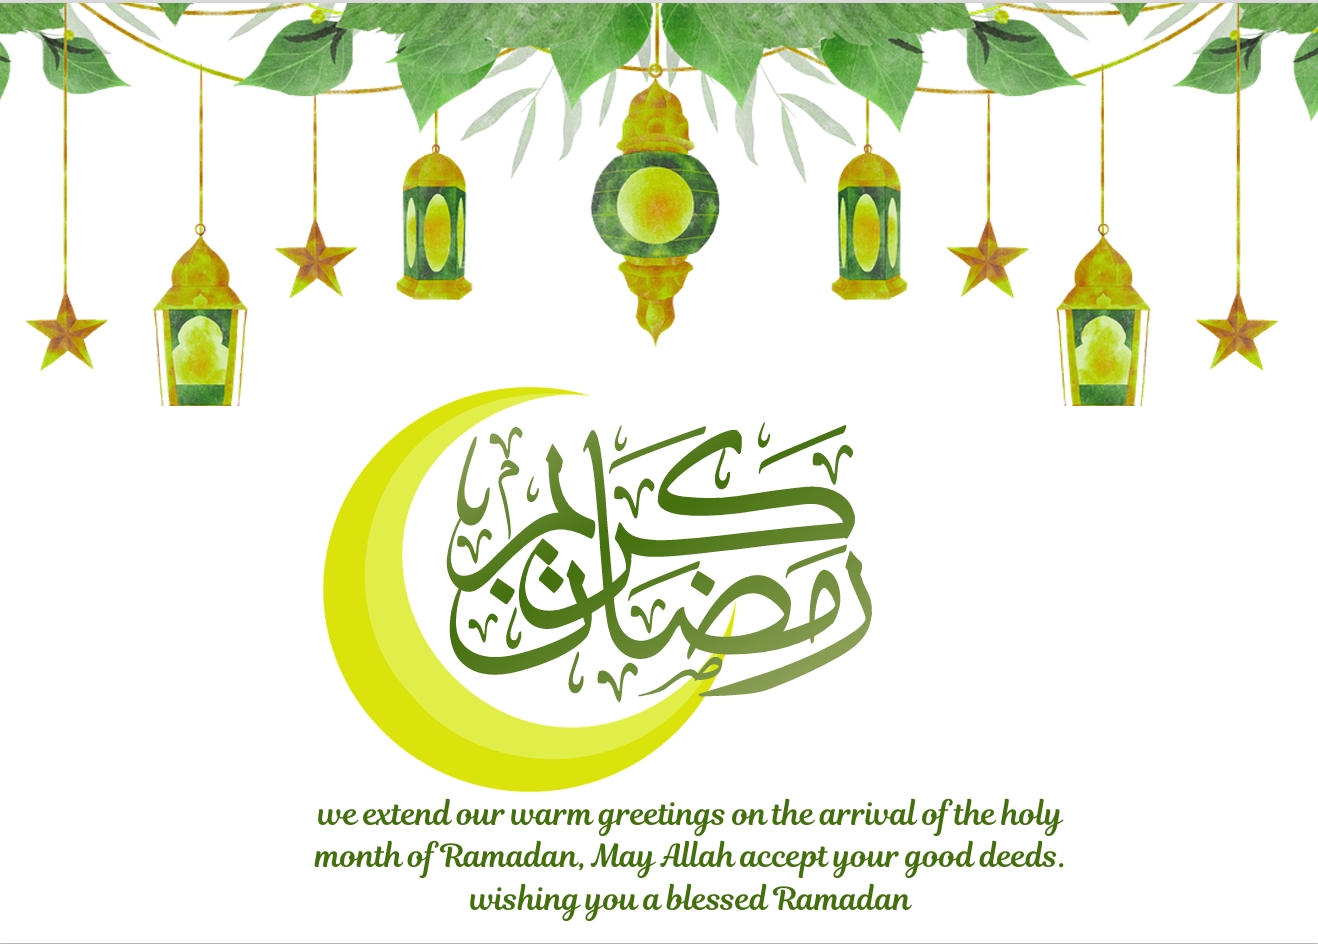 رمضان كريم
we extend our warm greetings on the arrival of the holy
month of Ramadan, May Allah accept your good deeds.
wishing you a blessed Ramadan